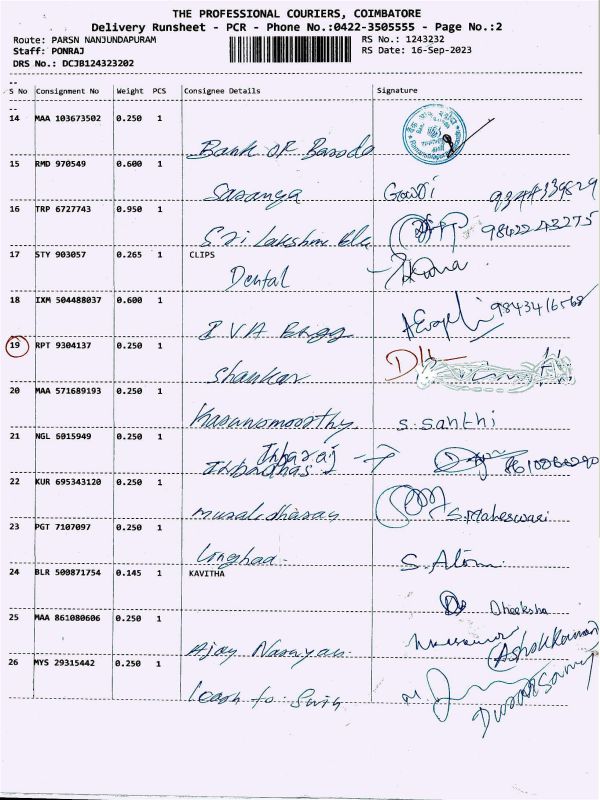 THE PROFESSIONAL COURIERS, COIMBATORE
Delivery Runsheet - PCR - Phone No.:0422-3505555 - Page No.:2
Route: PARSN NANJUNDAPURAM
RS No.: 1243232
Staff: PONRAJ
RS Date: 16-Sep-2023
DRS No.: DCJB124323202
S No Consignment No Weight PCS Consignee Details Signature
14 MAA 103673502 0.250 1
Bank of Baroda
15 RMD 970549 0.600 1
Saranga Gowri 9344139829
16 TRP 6727743 0.950 1
Sri Lakshmi 9842243275
17 STY 903057 0.265 1 CLIPS
Dental
18 IXM 504488037 0.600 1
9843416568
19 RPT 9304137 0.250 1
Shankar
20 MAA 571689193 0.250 1
S. Santhi
21 NGL 6015949 0.250 1
22 KUR 695343120 0.250 1
Muralidharan S. Maheswari
23 PGT 7107097 0.250 1
24 BLR 500871754 0.145 1 KAVITHA
Dheeksha
25 MAA 861080606 0.250 1
Ajay Narayan Ashokkumar
26 MYS 29315442 0.250 1